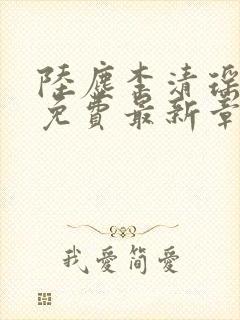 陸塵李清瑶
免費最新章
我愛簡愛